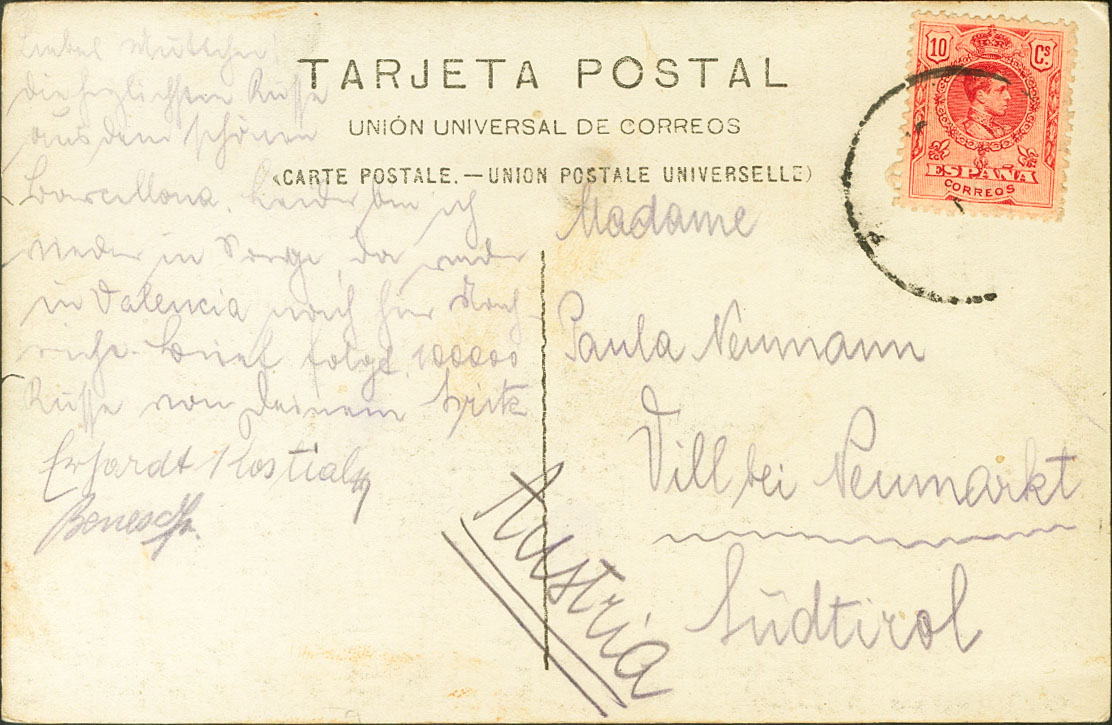 TARJETA POSTAL
UNIÓN UNIVERSAL DE CORREOS
(CARTE POSTALE.—UNION POSTALE UNIVERSELLE)
10 Cs
ESPAÑA
CORREOS
Liebes Muttchen!
die herzlichsten Küsse
aus dem schönen
Barcellona. Leider bin ich
wieder in Sorge, da weder
in Valencia noch hier Nach-
richt. Brief folgt. 100000
Küsse von Deinem Fritz
Erhardt Kostial
Benesch.
Madame
Paula Neumann
Vill bei Neumarkt
Südtirol
Austria